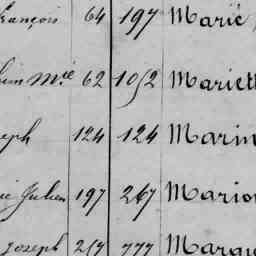 françois 64 197 Marie
Mel 62 1052 Mariett
eph 124 124 Marin
ie Julien 197 247 Marion
Joseph 257 777 Marqu